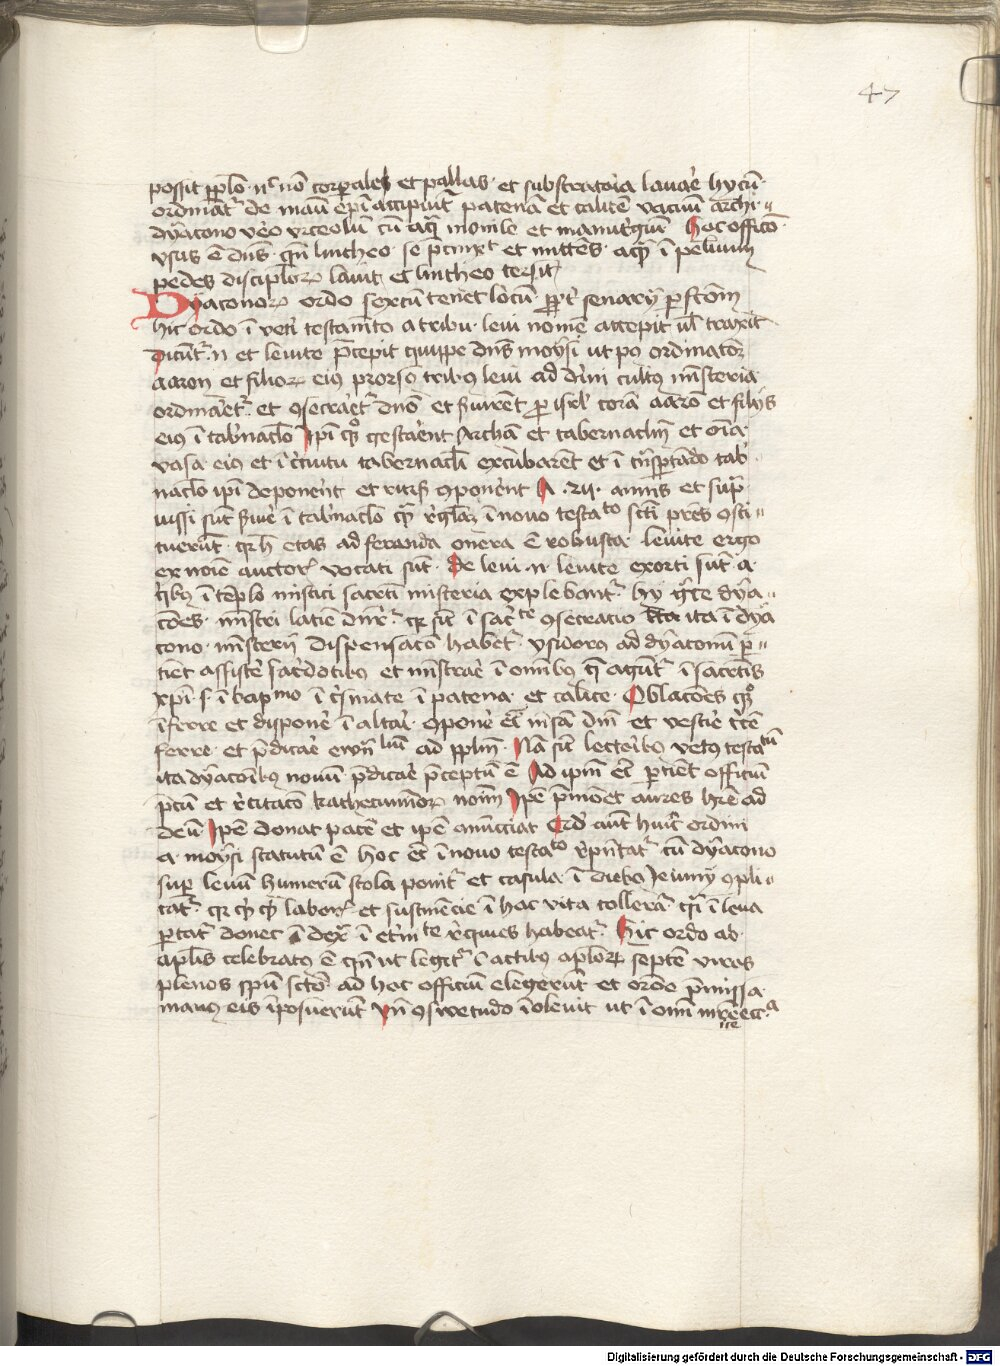 47
possit pplo nc no corporales et pallas et substratoia lavare hy cu
ordinat de manu epi accipiut patena et calice vacuu archi
dyacono vero vrceolu cu aq monile et manutgiu Hoc officio
vsus e dns qn lintheo se pcinxt et mittes aqm i peluim
pedes disciploru lavit et lintheo tersit
Dyaconoru ordo sextu tenet locu ppt senarij pfcom
hic ordo i veti testameto a tribu levi nome accepit ul traxit
Dicut n et levite pcepit quippe dns moysi ut po ordinatoem
aaron et filioru eius prorso tribus levi ad divini cultus misteria
ordinaret et gsecraet dno et svirent p isrl cora aaro et filijs
eius i tabnaclo Ipi qo gestaent Archa et tabernaclm et oia
vasa eius et i circuitu tabernacli excubarent et i tnsportado tab
naclo ipi deponent et rursus gponent A .xx. annis et supra
iussi sut svire i tabnaclo qm regla i novo testato scti pres osti
tuerut qr h etas ad feranda onera e robusta levite ergo
ex noie auctoris vocati sut De levi n levite exorti sut a
qbus i templo mistici sacrti misteria explebant hy grece dya
coes mistri latie dnr qr sic i sacte gsecratio ita i dya
cono misterij dispensaco habet ysidorus ad dyaconum p
tiet assiste sacdotibus et ministrae i omibus q agunt i sacrtis
xpi s i bapmo i crismate i patena et calice Oblacoes qo
i ferre et dispone i altai gpone et mesa dni et vestie cce
ferre et pdicae ewnliu ad pplm Na sic lectoribus vetus testatu
ita dyacoibus novu pdicae pceptu e Ad ipm et ptiet officiu
pcu et recitaco kathecuminoru noim Ipe pmonet aures hre ad
deu Ipe donat pace et ipe anuciat Ordo aut huic ordini
a moysi statutu e hoc et i novo testato repntat cu dyacono
super levu humeru stola ponit et casula i diebus ieiunij gpli
cat qr qcqd laboris et sustinencie i hac vita tollera qsi i leva
portat donec i dext i etinte requies habeat Hic ordo ab
aplis celebratus e qn ut legit i actibus aploru septe viros
plenos spu scto ad hoc officiu elegerut et ordoe pmissa
manus eis iposuerut Vn gswetudo iolevit ut i omi mre ecca
Digitalisierung gefördert durch die Deutsche Forschungsgemeinschaft - DFG